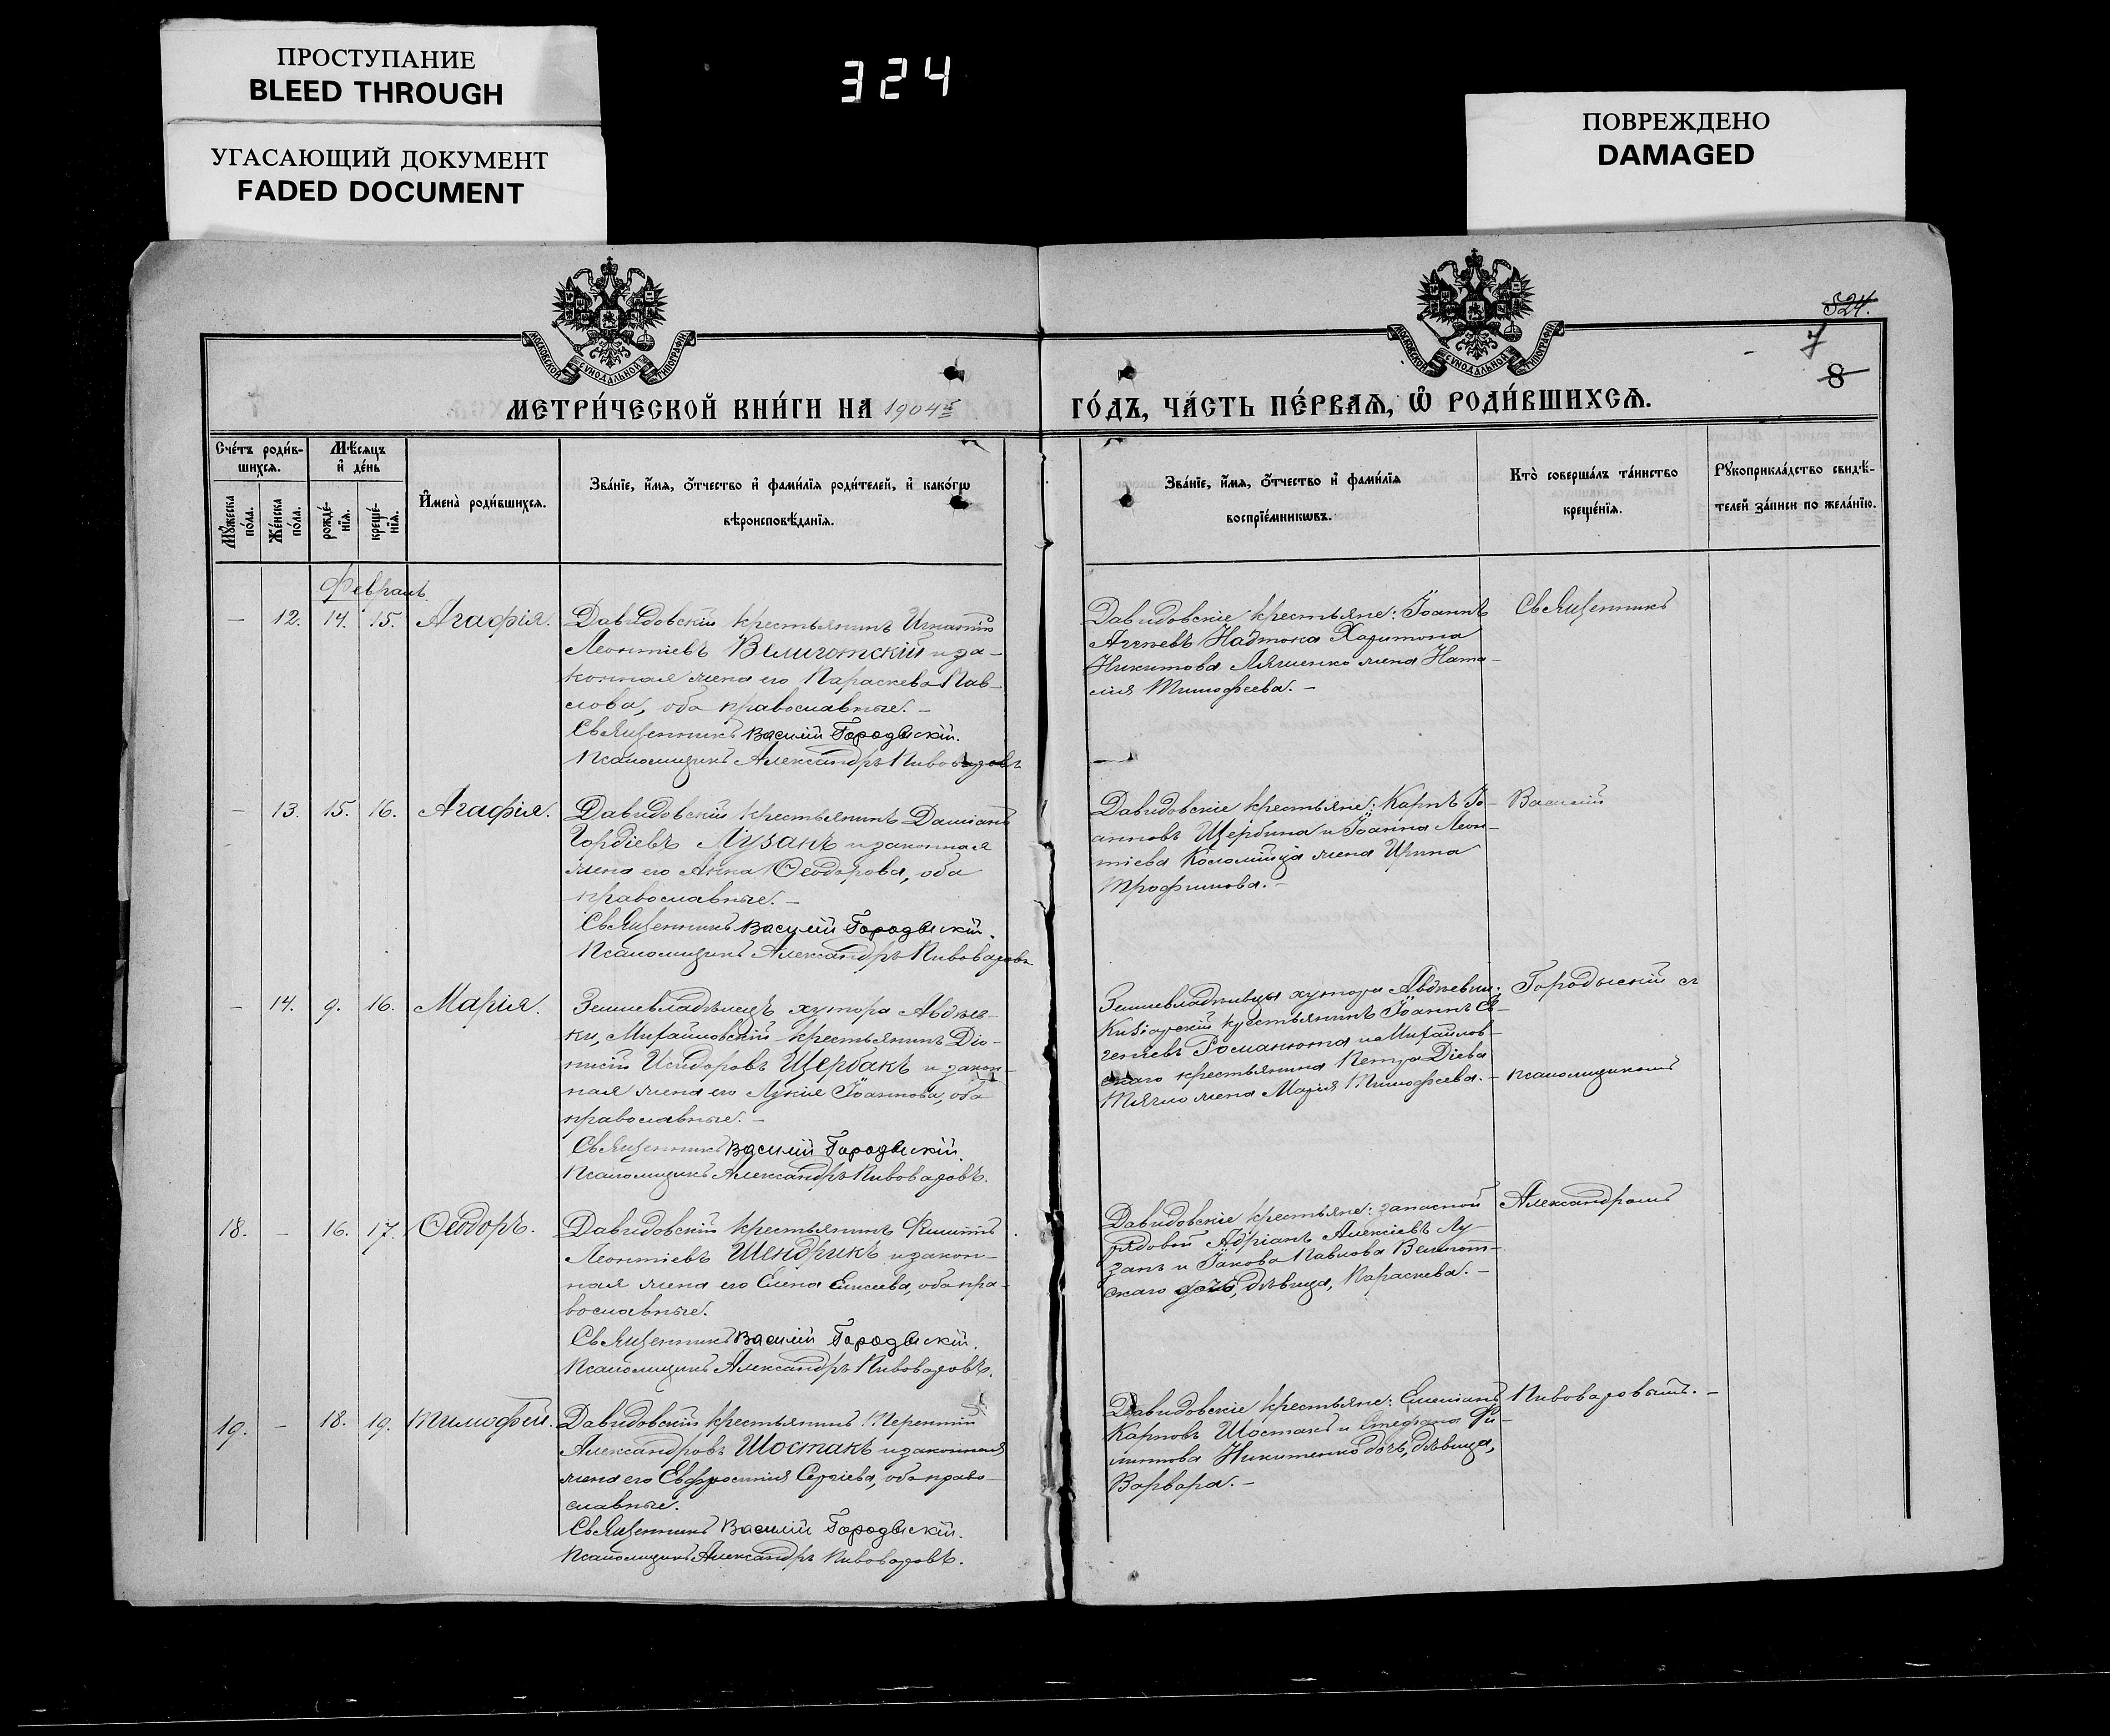 ПРОСТУПАНИЕ
BLEED THROUGH
УГАСАЮЩИЙ ДОКУМЕНТ
FADED DOCUMENT
324
ПОВРЕЖДЕНО
DAMAGED
МОСКОВСКОЙ СУНОДАЛЬНОЙ ТИПОГРАФІИ
МОСКОВСКОЙ СУНОДАЛЬНОЙ ТИПОГРАФІИ
324.
7
8
МЕТРИ́ЧЕСКОЙ КНИ́ГИ НА 1904й
ГО́ДЪ, ЧА́СТЬ ПЕ́РВАѦ, Ѡ РОДИ́ВШИХСѦ.
Сче́тъ роди́в-
шихсѧ.
Мꙋжеска по́ла.
Же́нска по́ла.
Мѣ́сѧцъ
и҆ де́нь
рожде́-
нїѧ.
креще́-
нїѧ.
И҆мена̀ роди́вшихсѧ.
Зва́нїе, и҆́мѧ, ѻ҆́тчество и҆ фами́лїѧ роди́телей, и҆ како́гѡ
вѣроисповѣ́данїѧ.
Зва́нїе, и҆́мѧ, ѻ҆́тчество и҆ фами́лїѧ
воспрїе́мникѡвъ.
Кто̀ соверша́лъ та́инство
креще́нїѧ.
Рꙋкоприкла́дство свидѣ́-
телей за́писи по жела́нїю.
Февраль.
— 12. 14. 15. Агафія.
Давидовскій крестьянинъ Игнатій
Леонтіевъ Великотскій и за-
конная жена его Параскева Пав-
лова, оба православные. —
Священникъ Василій Городыскій.
Псаломщикъ Александръ Пивоваровъ
Давидовскіе крестьяне: Іоаннъ
Агеевъ Надтока Харитона
Никитова Ляшенко жена Ната-
лія Тимофеева. —
Священникъ
— 13. 15. 16. Агафія.
Давидовскій крестьянинъ Даміанъ
Гордіевъ Лузанъ и законная
жена его Анна Ѳеодорова, оба
православные. —
Священникъ Василій Городыскій.
Псаломщикъ Александръ Пивоваровъ.
Давидовскіе крестьяне: Карпъ Іо-
анновъ Щербина и Іоанна Леон-
тіева Коломійца жена Ирина
Трофимова. —
Василій
— 14. 9. 16. Марія.
Землевладѣлецъ хутора Авдѣев-
ки, Михайловскій крестьянинъ Діо-
нисій Исидоровъ Щербакъ и закон-
ная жена его Лукія Іоаннова, оба
православные. —
Священникъ Василій Городыскій.
Псаломщикъ Александръ Пивоваровъ.
Землевладѣльцы хутора Авдѣевки:
крестьянинъ Іоаннъ Ев-
геніевъ Романюта и Михайлов-
скаго крестьянина Петра Діева
жена Марія Тимофеева. —
Городыскій съ
псаломщикомъ
18. — 16. 17. Ѳеодоръ.
Давидовскій крестьянинъ Филиппъ
Леонтіевъ Шендрикъ и закон-
ная жена его Елена Елисеева, оба пра-
вославные.
Священникъ Василій Городыскій.
Псаломщикъ Александръ Пивоваровъ.
Давидовскіе крестьяне: запасной
рядовой Адріанъ Алексіевъ Лу-
занъ и Іакова Павлова Великот-
скаго дочь, дѣвица, Параскева. —
Александромъ
19. — 18. 19. Тимофей.
Давидовскій крестьянинъ Терентій
Александровъ Шостакъ и законная
жена его Евфросинія Сергіева, оба право-
славные.
Священникъ Василій Городыскій.
Псаломщикъ Александръ Пивоваровъ.
Давидовскіе крестьяне: Емиліанъ
Карповъ Шостакъ и Стефана Фи-
липпова Никитенко дочь, дѣвица,
Варвара. —
Пивоваровымъ. —